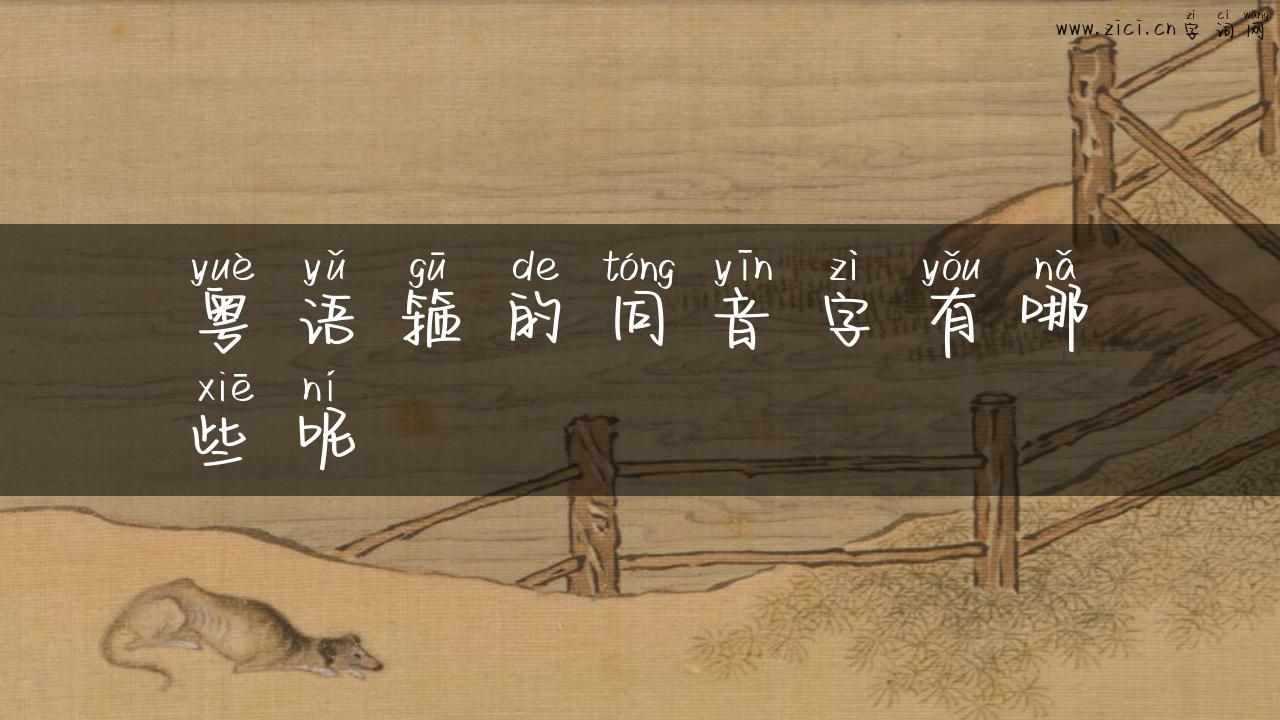 zi ci wang
www.zici.cn字词网
yuè yǔ gū de tóng yīn zì yǒu nǎ
粤语箍的同音字有哪
xiē ní
些呢